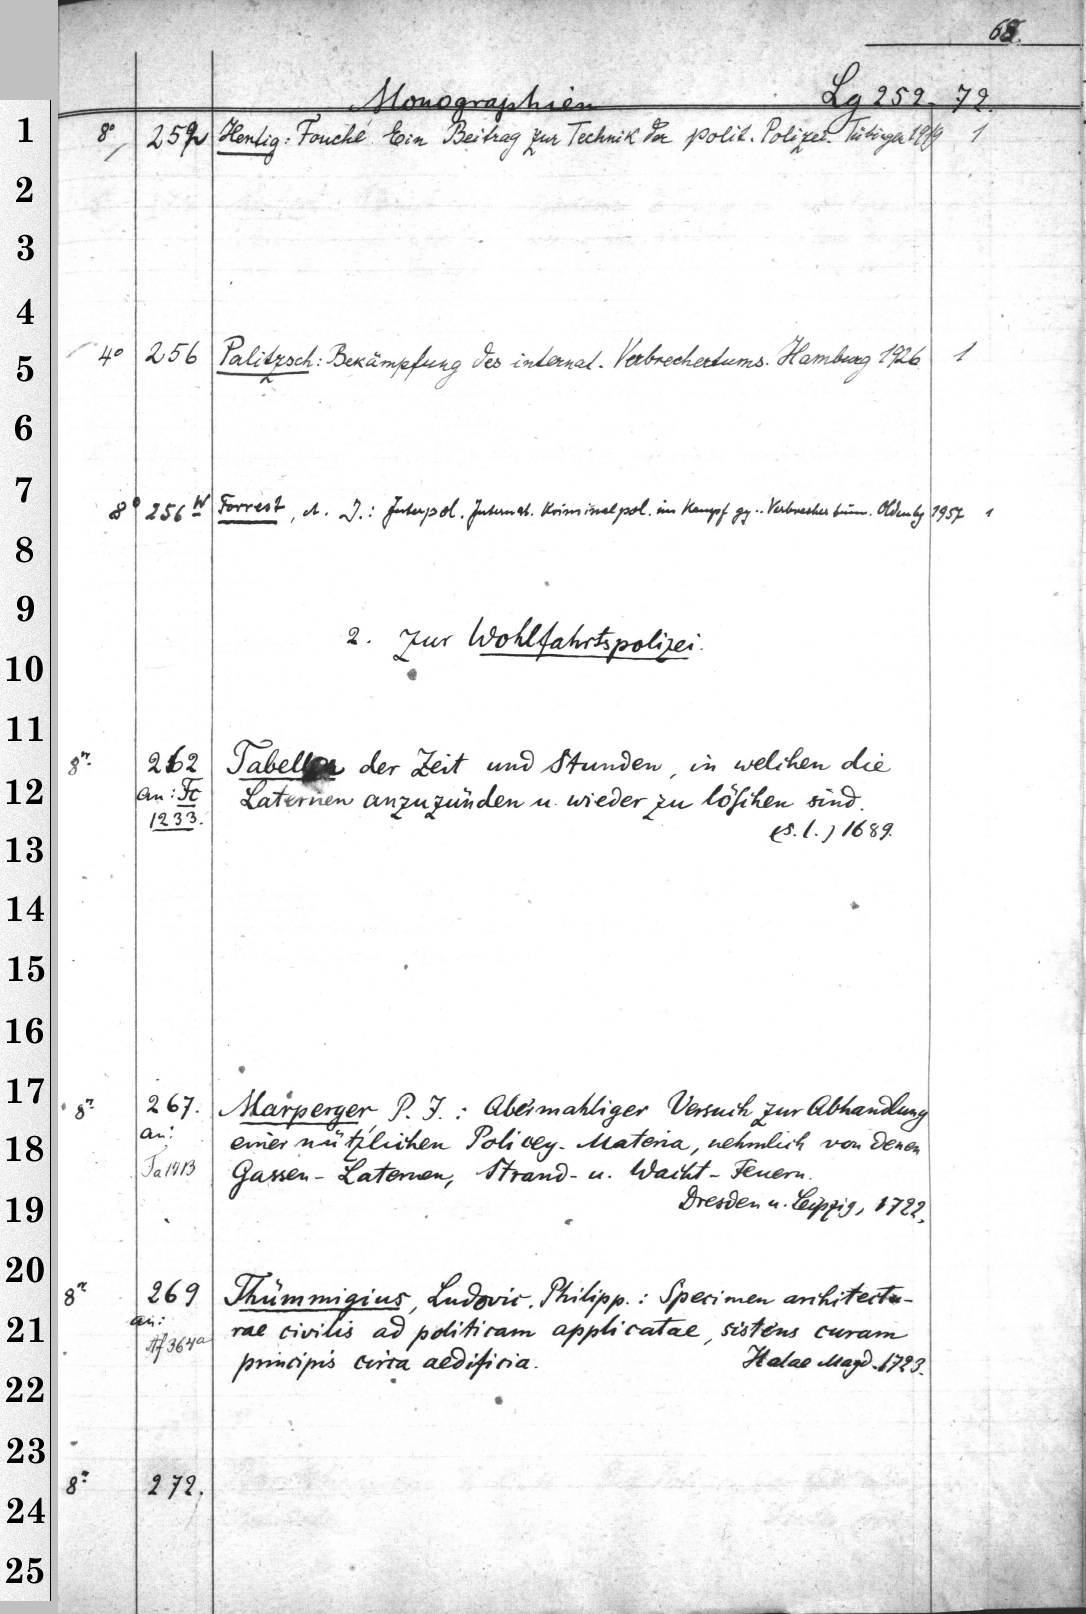 68.
Monographien Lg 252-72.
1 8° 252 Hentig: Fouché. Ein Beitrag zur Technik der polit. Polizei. Tübingen 1919 1
2
3
4
5 4° 256 Palitzsch: Bekämpfung des internat. Verbrechertums. Hamburg 1926 1
6
7 8° 256 w Forrest, A. J.: Interpol. Internat. Kriminalpol. im Kampf gg. Verbrechertum. Oldenbg 1957 1
8
9
10 2. Zur Wohlfahrtspolizei.
11
12 8° 262 Tabellen der Zeit und Stunden, in welchen die
an: Fc Laternen anzuzünden u. wieder zu löschen sind.
1233. (s. l.) 1689.
13
14
15
16
17 8° 267. Marperger, P. J.: Abermahliger Versuch zur Abhandlung
18 an: einer nützlichen Policey-Materia, nehmlich von denen
Gassen-Laternen, Strand- u. Wacht-Feuern.
19 Dresden u. Leipzig, 1722.
20 8° 269 Thümmigius, Ludovic. Philipp.: Specimen architectu-
21 an: rae civilis ad politicam applicatae, sistens curam
Af 364a principis circa aedificia. Halae Magd. 1723.
22
23
24 8° 272.
25